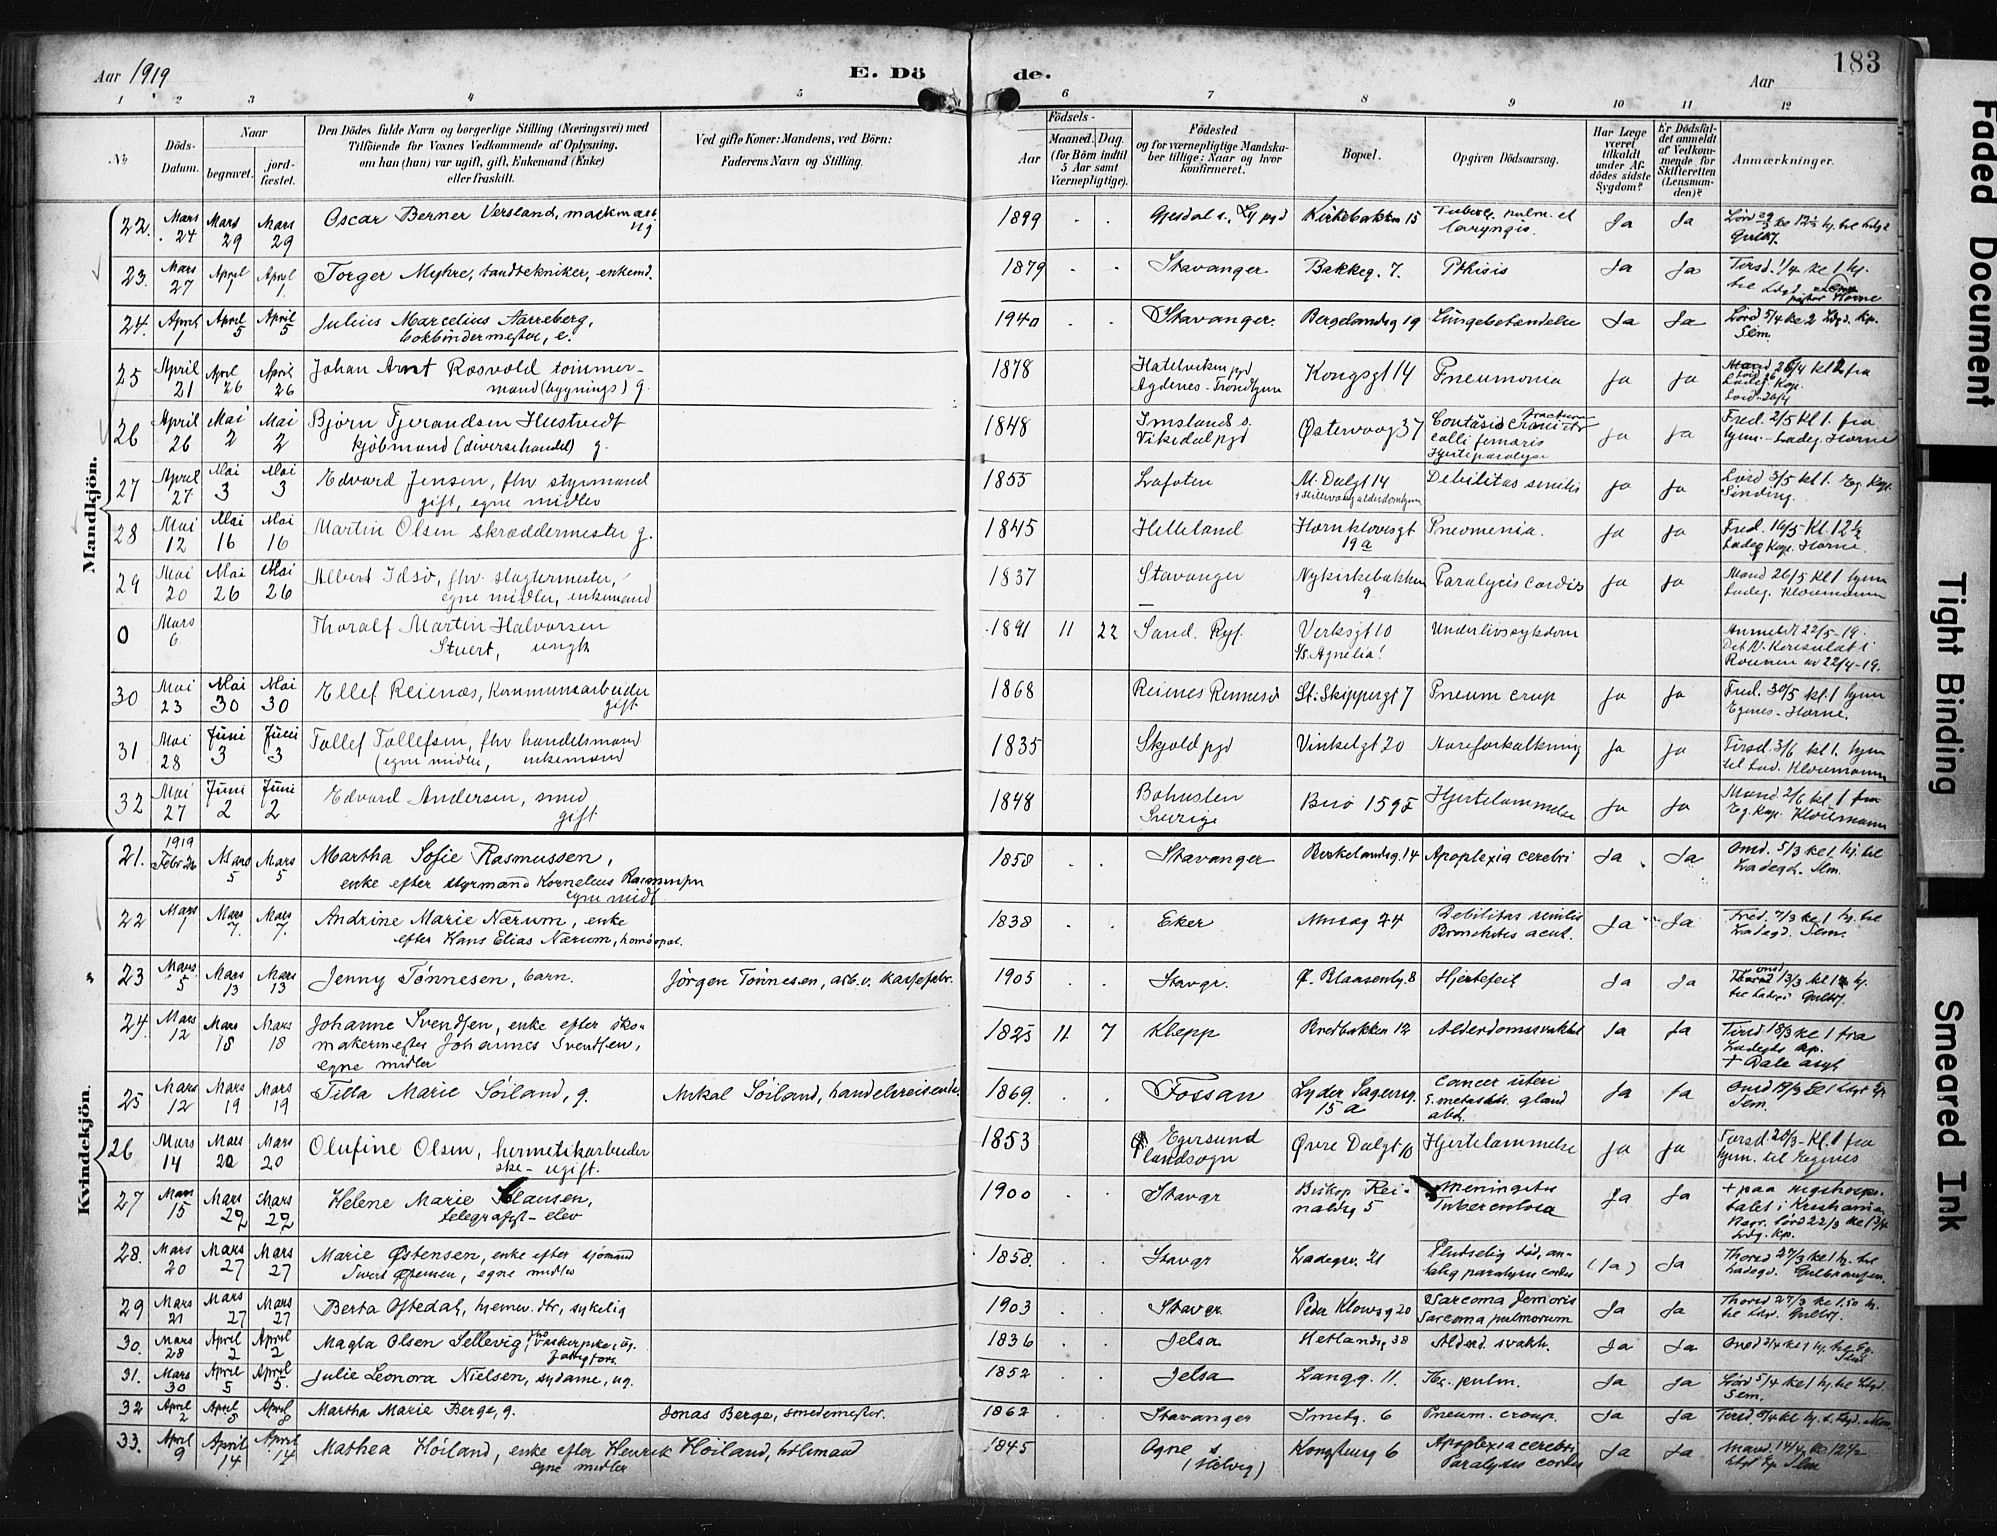 Aar 1919
E. Dö
de.
Aar
183
1 2 3 4 5 6 7 8 9 10 11 12
No
Döds-
Datum.
Naar
begravet.
jord-
fæstet.
Den Dödes fulde Navn og borgerlige Stilling (Næringsvei) med
Tilföiende for Voxnes Vedkommende af Oplysning,
om han (hun) var ugift, gift, Enkemand (Enke)
eller fraskilt.
Ved gifte Koner: Mandens, ved Börn:
Faderens Navn og Stilling.
Födsels-
Aar
Maaned. Dag.
(for Börn indtil
5 Aar samt
Værnepligtige).
Födested
og for værnepligtige Mandska-
ber tillige: Naar og hvor
konfirmeret.
Bopæl.
Opgiven Dödsaarsag.
Har Læge
været
tilkaldt
under Af-
dödes sidste
Sygdom?
Er Dödsfal-
det anmeldt
af Vedkom-
mende for
Skifteretten
(Lensman-
den)?
Anmærkninger.
Mandkjön.
22. Mars 24 Mars 29 Mars 29 Oscar Berner Versland, 1899 . . Gjesdal s. Ly pgd Kirkebakken 15 Tuberc. pulm. et laryngis. Ja Ja
23. Mars 27 April 1 April 1 Torger Myhre, tandtekniker, enkem. 1879 . . Stavanger Bakkeg. 7. Pthisis Ja Ja Tirsd. 1/4 kl 1 hj.
24. April 1 April 5 April 5 Julius Marcelius Aarreberg,
bokbindermester, e. 1940 . . Stavanger. Bergelandsg 19 Lungebetændelse Ja Ja Lörd 5/4 kl 2 Ldgd. Kp.
Sem.
25 April 21 April 26 April 26 Johan Arnt Rosvold tömmer-
mand (bygnings) g. 1878 Hatelviken pgd
Agdenes - Trondhjem Kongsgt 14 Pneumonia ja ja
26 April 26 Mai 2 Mai 2 Björn Tjerandsen Hustvedt
kjöbmand (diversehandel) g. 1848 Imslands s.
Vikedal pgd Østervaag 37 colli femoris
Hjerteparalyse ja ja Fred. 2/5 Kl 1. fra
hjem. - Ladeg. Horne
27 April 27 Mai 3 Mai 3 Edvard Jensen, fhv styrmand
gift, egne midler 1855 Lofoten M. Dalgt 14 Debilitas senilis ja ja Lörd 3/5 kl 1. Eg. Kap.
Sinding.
28 Mai 12 Mai 16 Mai 16 Martin Olsen skræddermester g. 1845 Helleland Hornklovesgt
19a Pneomenia. ja ja Fred. 16/5 Kl. 12 1/2
Ladeg Kap. Horne
29 Mai 20 Mai 26 Mai 26 Albert Idsö, fhv. slagtermester,
egne midler, enkemand 1837 Stavanger Nykirkebakken
9 Paralycis cordis ja ja Mand 26/5 Kl 1 hjem
Ladeg. Kloumann
0 Mars 6 Thoralf Martin Halvorsen
Stuert, ungk 1891 11 22 Sand. Ryf. Verksgt 10
S/S Agnelia! Underlivssykdom Anmeldt 22/5-19.
Det N. Konsulat i
Rouen av 22/4-19.
30 Mai 23 Mai 30 Mai 30 Ellef Reienæs, Kommunearbeider
gift 1868 Reienes Rennesö St. Skippergt 7 Pneum crup ja ja Fred. 30/5 kl. 1 hjem
Egenes - Horne.
31 Mai 28 Juni 3 Juni 3 Tollef Tollefsen, fhv handelsmand
(egne midler, enkemand 1835 Skjold pgd Vinkelgt 20 Aareforkalkning ja ja Tirsd. 3/6 kl 1. hjem
til Lad. Kloumann
32 Mai 27 Juni 2 Juni 2 Edvard Andersen, smed
gift 1848 Bohuslen
Sverige Buö Hjertelammelse ja ja Mand 2/6 kl. 1 fra
Eg. Kap. Kloumann
Kvindekjön
21. 1919 Febr 26 Mars 5 Mars 5 Martha Sofie Rasmussen,
enke efter styrmand Kornelius Rasmussen
egne midl 1858 . . Stavanger Birkelandsg. 14 Apoplexia cerebri Ja . Ja Onsd. 5/3 kl 1. hj. til
Ladegd. Sem.
22 Mars 1 Mars 7 Mars 7 Andrine Marie Nærum, enke
efter Hans Elias Nærum, homöopat. 1838 . . Eker Museg 74 Debilitas senilis
Bronchites acut. Ja Ja Fred. 7/3 kl 1 hj. til
Ladegd. Sem.
23 Mars 5 Mars 13 Mars 13 Jenny Tönnesen, barn. Jörgen Tönnesen, arb. v. kassefabr. 1905 . . Stavgr. Ø. Blaasenbg. 8 Hjertefeil Ja Ja
24. Mars 12 Mars 18 Mars 18 Johanne Svendsen, enke efter sko-
makermester Johannes Svendsen,
egne midler 1825 11 7 Klepp Bredbakken 12 Alderdomssvakhet Ja Ja Tirsd 18/3 kl 1 fra
Ladegds kp.
+ Dale asyl
25 Mars 12 Mars 19 Mars 19 Tilla Marie Söiland, g. Mikal Söiland, handelsreisende. 1869. . . Fossan Lyder Sagensg.
15 a Cancer uteri
c. metastas. gland
abd. Ja Ja Onsd 19/3 kl 1 Ldgd Kp
Sem.
26 Mars 14 Mars 20 Mars 20 Olufine Olsen, hermetikarbeider
ske - ugift. 1853 Egersund
landsogn Øvre Dalgt 10 Hjertelammelse ja ja Torsd 20/3 - Kl. 1 fra
hjem. til Egenes
27 Mars 15 Mars 22 Mars 22 Helene Marie Clausen,
telegrafist-elev 1900 . . Stavgr Biskop Rei-
naldsg 5 Meningitis
Tuberculosa Ja Ja + paa rigshospi-
talet i Kristiania.
28. Mars 20 Mars 27 Mars 27 Marie Östensen, enke efter sjömand
Sivert Östensen, egne midler 1858. . . Stavgr Ladegv. 21 Plutselig död, an-
talig paralysis cordis (Ja) Ja Thorsd 27/3 kl 1 hj. til
Ladegd. Gulbransen.
29 Mars 21 Mars 27 Mars 27 Berta Oftedal, hjemv. dtr, sykelig 1903 . . Stavgr Peder Klowsg 20 Sarcoma femoris
Sarcoma pulmorum Ja Ja
30. Mars 28 April 2 April 2 Magla Olsen Sellevig, 1836 . . Jelsa Hetlandsg 38 Alderd. svakh. Ja Ja
31. Mars 30 April 5 April 5. Julie Leonora Nielsen, sydame, ug. 1852 . . Jelsa Langg. 11. Tbc. pulm. Ja Ja Lörd 5/4 kl 1 hj. til Ldgd.
Sem.
32 April 2 April 8 April 8 Martha Marie Berge, g. Jonas Berge, smedemester. 1862 . . Stavanger Smedg. 6 Pneum. croup. Ja Ja
33. April 9 April 14 April 14 Mathea Höiland, enke efter Henrik Höiland,
egne midler 1845 . . Ogne s Kongsteinsg 6 Apoplexia cerebri,
Paralyses cordis Ja Ja
Faded Document
Tight Binding
Smeared Ink